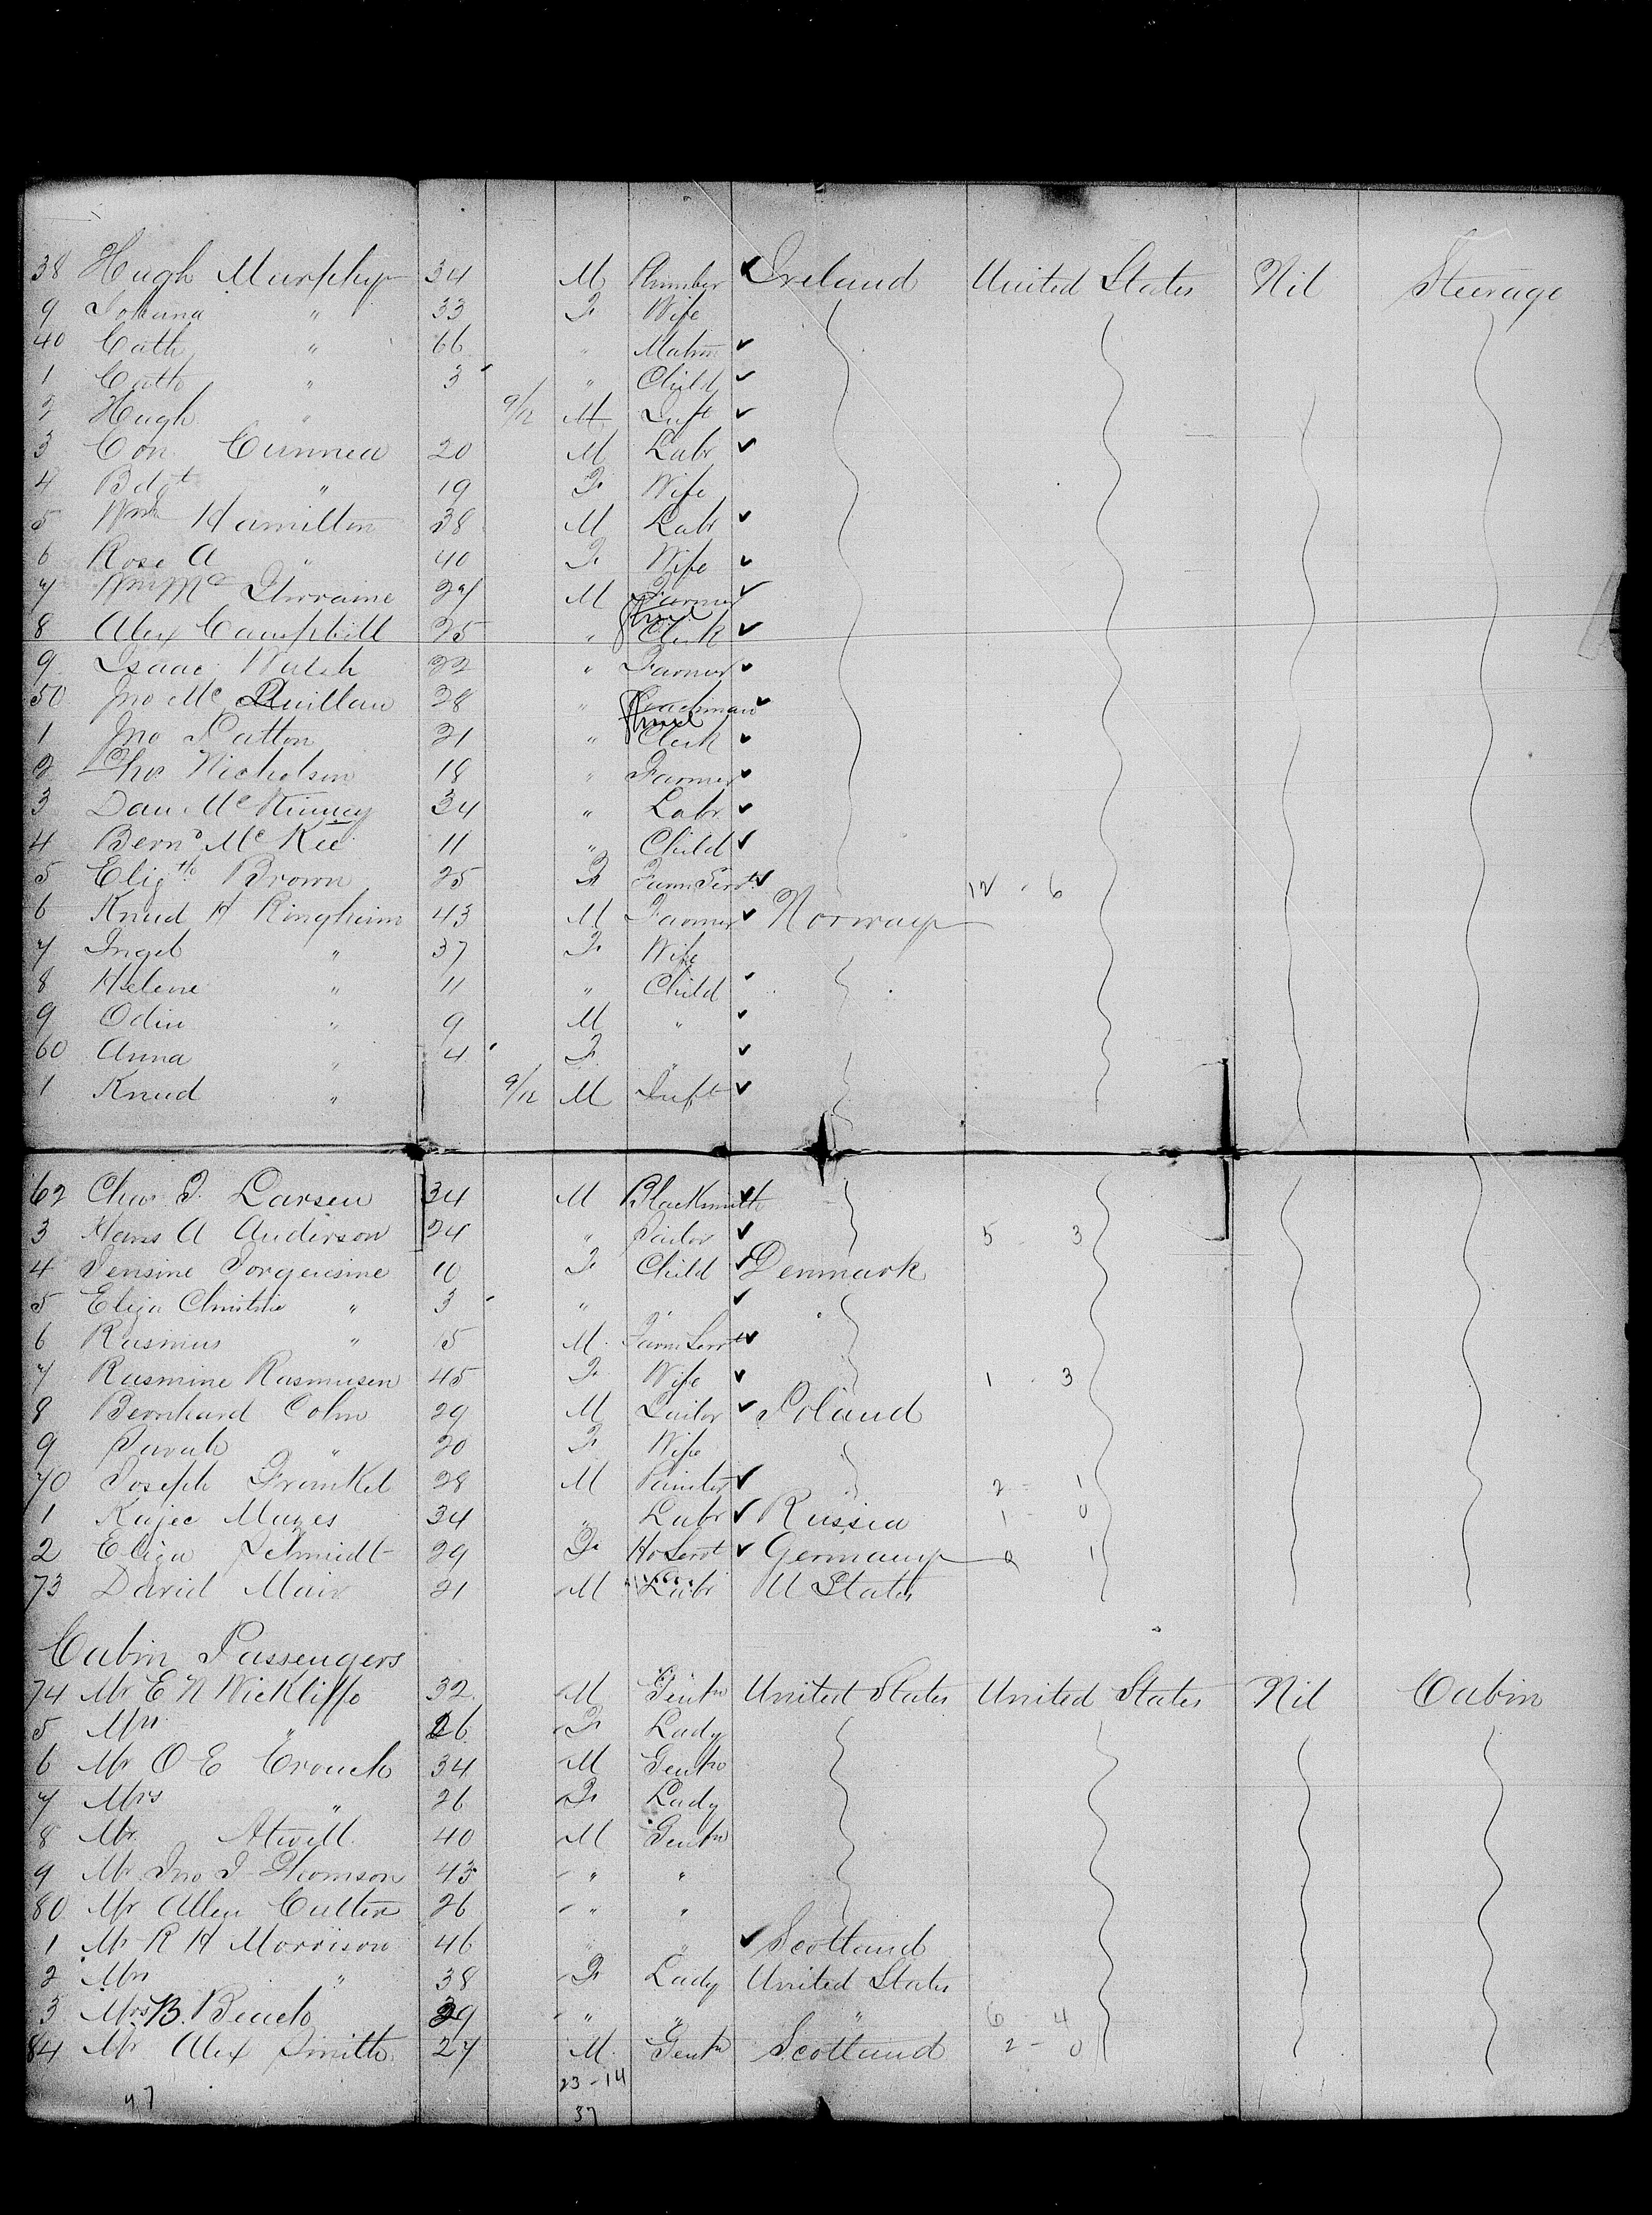 38 Hugh Murphy 34 M Plumber Ireland United States Nil Steerage
9 Johana " 33 F Wife
40 Cath " 66 " Matron
1 Cath " 3 " Child
2 Hugh " 9/12 M Inft
3 Con Cunnea 20 M Labr
4 Bdgt " 19 F Wife
5 Wm Hamilton 38 M Labr
6 Rose A " 40 F Wife
7 Wm Mc 27 M Farmer
8 Alex Campbell 25 " Clerk
9 Isaac Walsh 22 " Farmer
50 Jno Mc Quillan 28 " Coachman
1 Jno Patton 21 " Clerk
2 Nicholson 18 " Farmer
3 Dan McKinney 34 " Labr
4 Bernd McKee 11 " Child
5 Elizth Brown 25 F Farm Servt 12 - 6
6 Knud H Ringheim 43 M Farmer Norway
7 Ingeb " 37 F Wife
8 Helene " 11 " Child
9 Odin " 9 M "
60 Anna " 4 F "
1 Knud " 9/12 M Inft
62 Chas J. Larsen 34 M Blacksmith
3 Hans A Anderson 24 " Sailor 5 - 3
4 Jensine Jorgensine 10 F Child Denmark
5 Eliza Christine " 3 " "
6 Rasmus " 15 M Farm Servt
7 Rasmine Rasmusen 45 F Wife 1 - 3
8 Bernhard Cohn 29 M Tailor Poland
9 Sarah " 20 F Wife
70 Joseph Frankel 28 M Painter 2 - 1
1 Kajec Mazes 34 " Labr Russia 1 - 0
2 Eliza Schmidt 29 F Ho Servt Germany 0 1
73 David Mair 21 M Labr U States
Cabin Passengers
74 Mr E N Wickliffe 32 M Gentn United States United States Nil Cabin
5 Mrs " 26 F Lady
6 Mr O E Crouch 34 M Gentn
7 Mrs " 26 F Lady
8 Mr Atwill 40 M Gentn
9 Mr Jno J Thomson 43 " "
80 Mr Allen Culter 26 " "
1 Mr R H Morrison 46 " " Scotland
2 Mrs " 38 F Lady United States
3 Mrs B. Beach 39 " " " 6 4
84 Mr Alex Smith 27 M Gentn Scotland 2 - 0
23 - 14
47 37